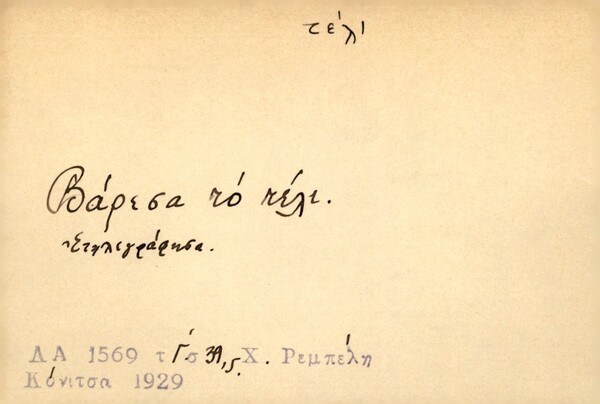 τέλι
Βάρεσα τό τέλι.
Ἐτηλεγράφησα.
ΛΑ 1569 τ Γ΄. σ 39, 5. Χ. Ρεμπέλη
Κόνιτσα 1929